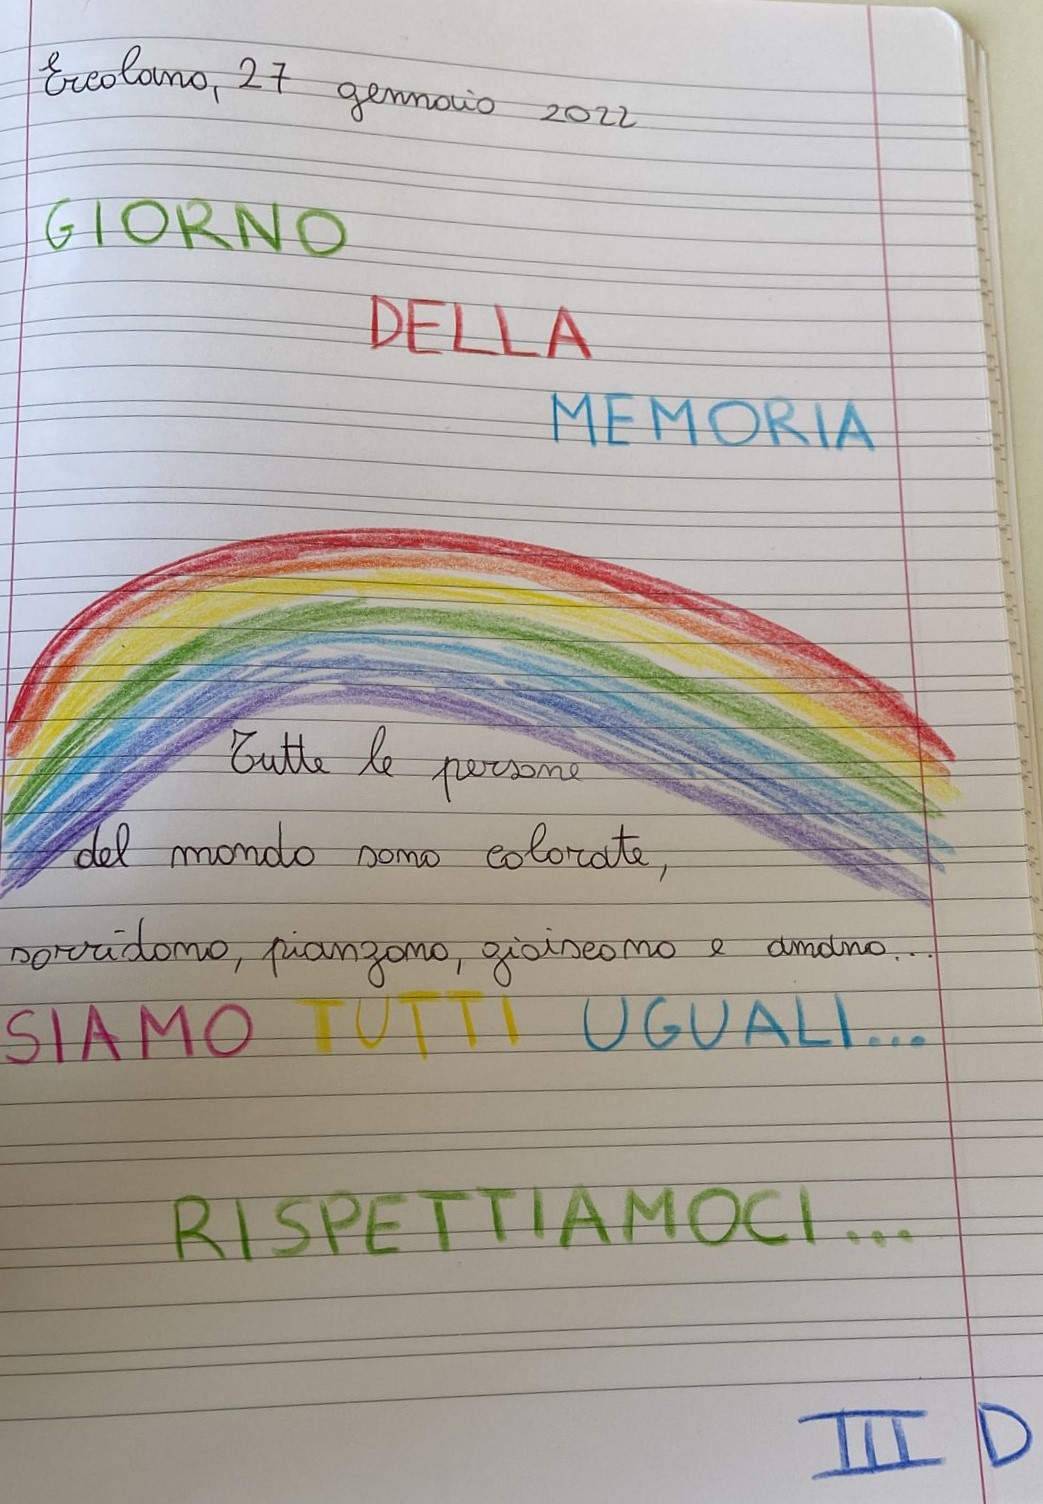 Ercolano, 27 gennaio 2022
GIORNO
DELLA
MEMORIA
Tutte le persone
del mondo sono colorate,
sorridono, pianzono, gioiscono e amano...
SIAMO TUTTI UGUALI...
RISPETTIAMOCI...
III D